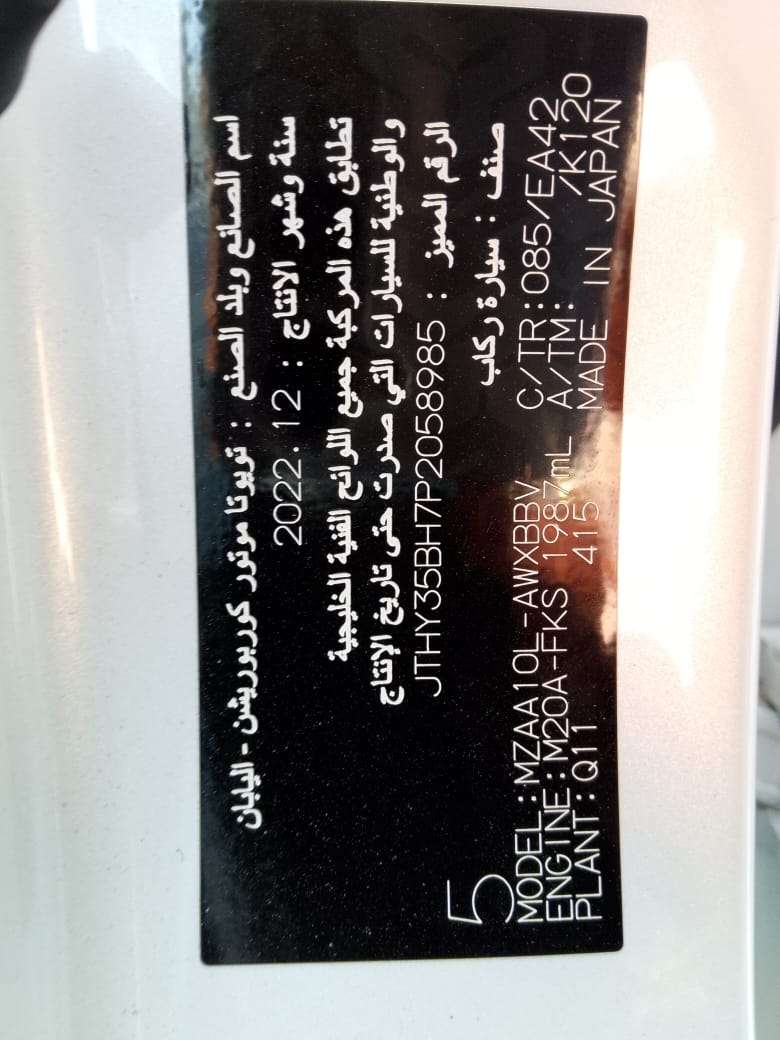 اسم الصانع وبلد الصنع : تويوتا موتور كوربوريشن - اليابان
سنة وشهر الانتاج : 2022.12
تطابق هذه المركبة جميع اللوائح الفنية الخليجية
والوطنية للسيارات التي صدرت حتى تاريخ الإنتاج
الرقم المميز : JTHY35BH7P2058985
صنف : سيارة ركاب
5
MODEL:MZAA10L-AWXBBV C/TR:085/EA42
ENGINE:M20A-FKS 1987mL A/TM: /K120
PLANT:Q11 415 MADE IN JAPAN